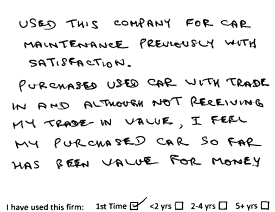 USED THIS COMPANY FOR CAR
MAINTENANCE PREVIOUSLY WITH
SATISFACTION.
PURCHASED USED CAR WITH TRADE
IN AND ALTHOUGH NOT RECEIVING
MY TRADE-IN VALUE, I FEEL
MY PURCHASED CAR SO FAR
HAS BEEN VALUE FOR MONEY
I have used this firm: 1st Time ☑ <2 yrs ☐ 2-4 yrs ☐ 5+ yrs ☐